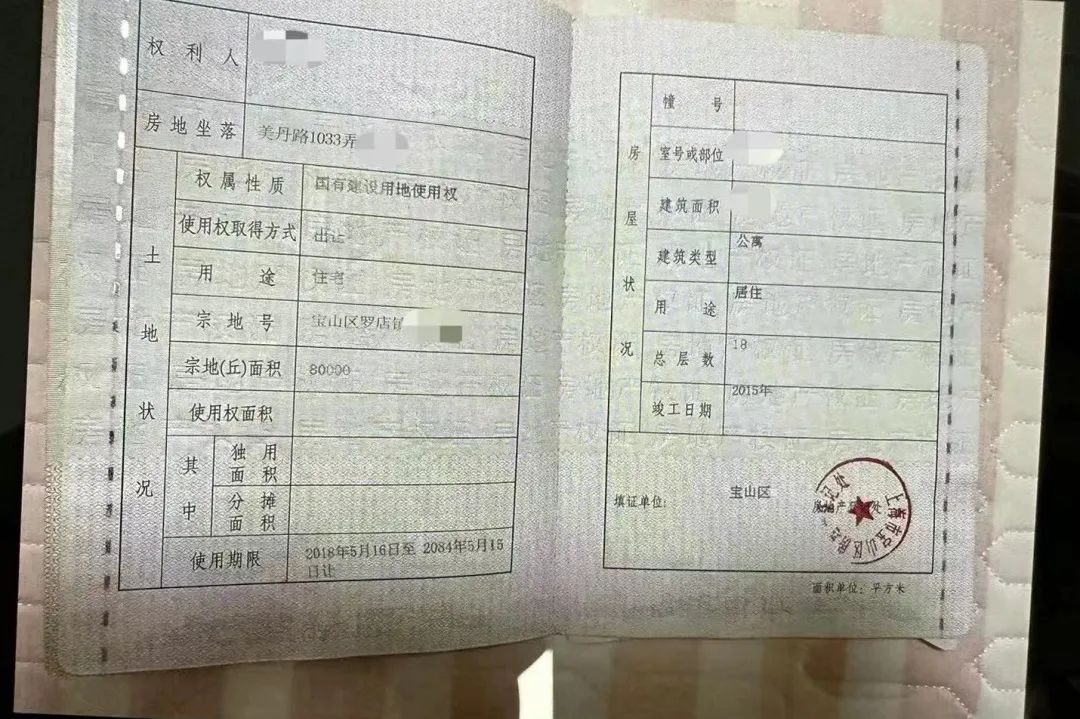 权利人
房地坐落 美丹路1033弄
土地状况
权属性质 国有建设用地使用权
使用权取得方式 出让
用途 住宅
宗地号 宝山区罗店镇
宗地(丘)面积 80000
使用权面积
其中
独用面积
分摊面积
使用期限 2018年5月16日至 2084年5月15
日让
房屋状况
幢号
室号或部位
建筑面积
建筑类型 公寓
用途 居住
总层数 18
竣工日期 2015年
填证单位: 宝山区
上海市宝山区房
登记处
面积单位: 平方米